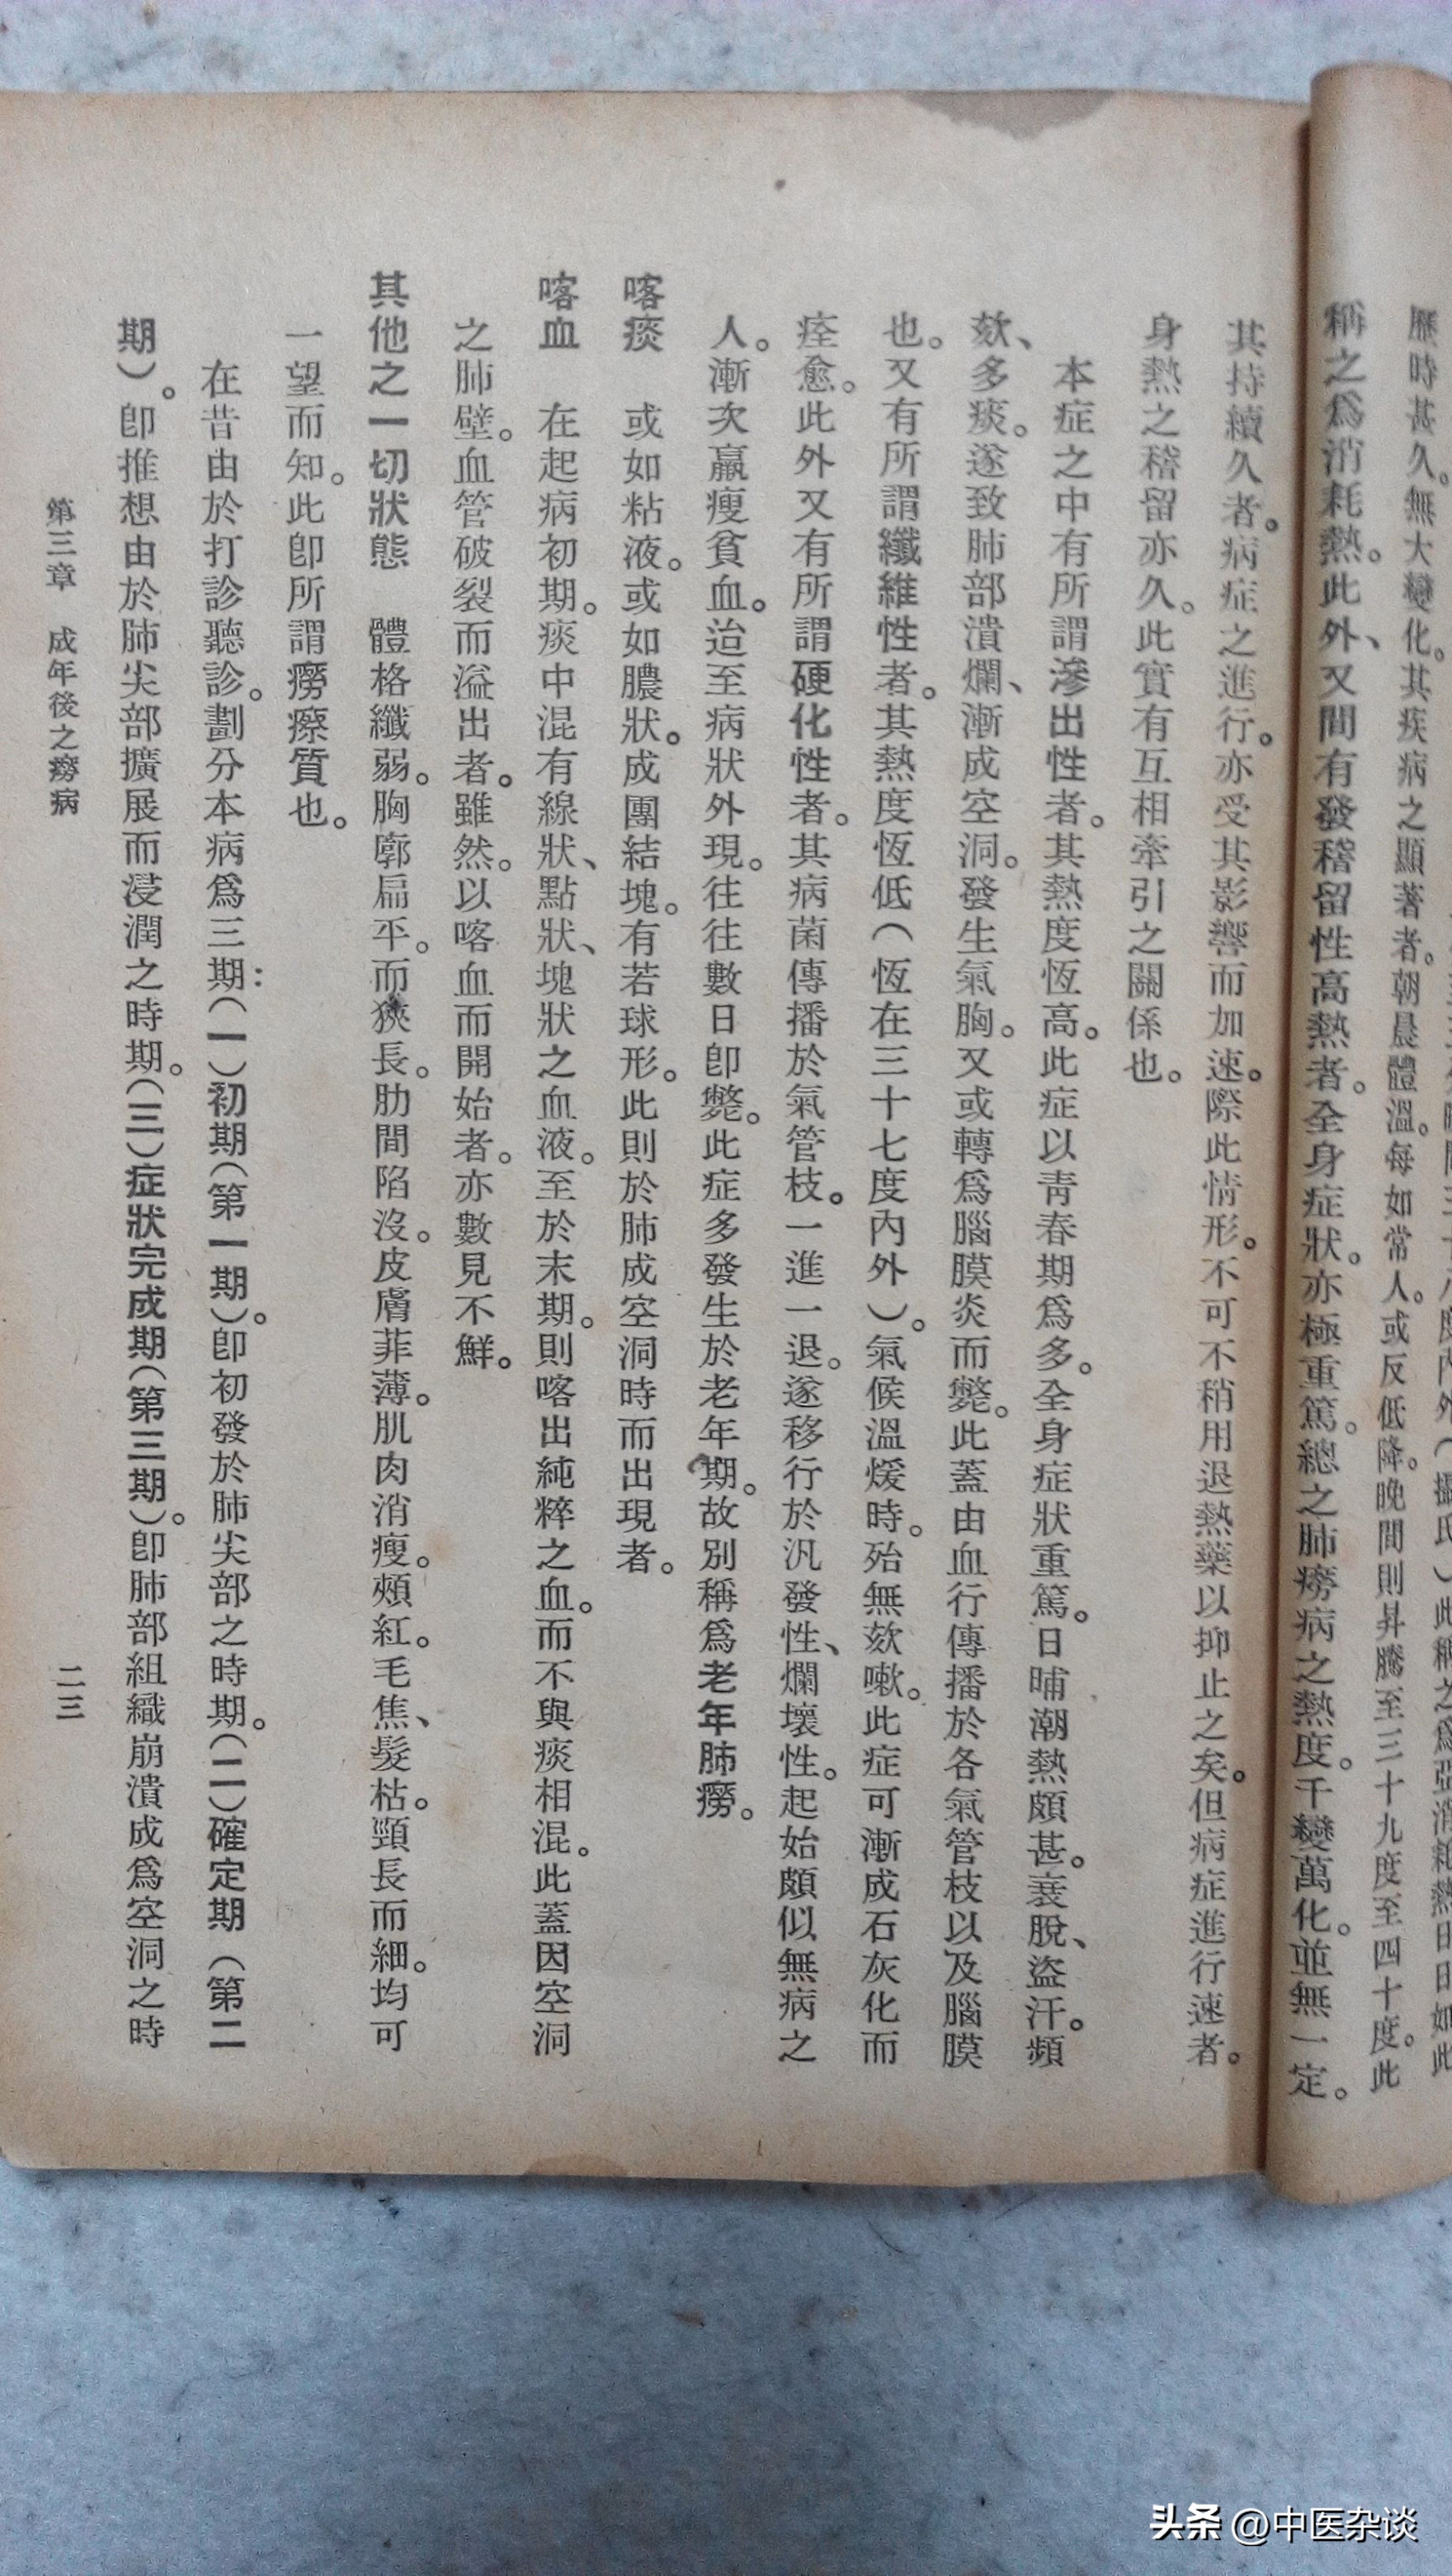 歷時甚久。無大變化。其疾病之顯著者。朝晨體溫。每如常人。或反低降。晚間則昇騰至三十九度至四十度。此
稱之爲消耗熱。此外、又間有發稽留性高熱者。全身症狀。亦極重篤。總之肺癆病之熱度。千變萬化。並無一定。
其持續久者。病症之進行。亦受其影響而加速。際此情形。不可不稍用退熱藥以抑止之矣。但病症進行速者。
身熱之稽留亦久。此實有互相牽引之關係也。
本症之中有所謂滲出性者。其熱度恆高。此症以靑春期爲多。全身症狀重篤。日晡潮熱頗甚。衰脫、盜汗。頻
欬、多痰。遂致肺部潰爛、漸成空洞。發生氣胸。又或轉爲腦膜炎而斃。此蓋由血行傳播於各氣管枝以及腦膜
也。又有所謂纖維性者。其熱度恆低（恆在三十七度內外）。氣候溫煖時。殆無欬嗽。此症可漸成石灰化而
痊愈。此外又有所謂硬化性者。其病菌傳播於氣管枝。一進一退。遂移行於汎發性、爛壞性。起始頗似無病之
人。漸次羸瘦貧血。迨至病狀外現。往往數日卽斃。此症多發生於老年期。故別稱爲老年肺癆。
喀痰　或如粘液。或如膿狀。成團結塊。有若球形。此則於肺成空洞時而出現者。
喀血　在起病初期。痰中混有線狀、點狀、塊狀之血液。至於末期。則喀出純粹之血。而不與痰相混。此蓋因空洞
之肺壁。血管破裂而溢出者。雖然。以喀血而開始者。亦數見不鮮。
其他之一切狀態　體格纖弱。胸廓扁平。而狹長。肋間陷沒。皮膚菲薄。肌肉消瘦。頰紅。毛焦、髮枯。頸長而細。均可
一望而知。此卽所謂癆瘵質也。
在昔由於打診聽診。劃分本病爲三期：（一）初期（第一期）。卽初發於肺尖部之時期。（二）確定期（第二
期）。卽推想由於肺尖部擴展而浸潤之時期。（三）症狀完成期（第三期）。卽肺部組織崩潰成爲空洞之時
第三章　成年後之癆病　二三
头条 @中医杂谈